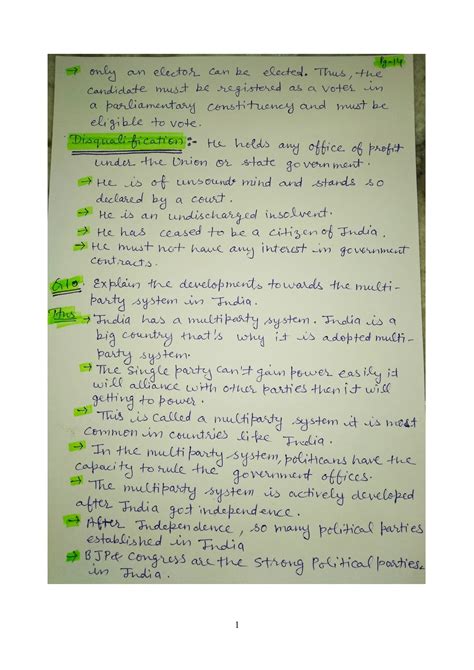 Pg-14
→ only an elector can be elected. Thus, the
candidate must be registered as a voter in
a parliamentary constituency and must be
eligible to vote.
Disqualification:- He holds any office of profit
under the Union or state government.
→ He is of unsound mind and stands so
declared by a court.
→ He is an undischarged insolvent.
→ He has ceased to be a citizen of India.
→ He must not have any interest in government
contracts.
Q.10. Explain the developments towards the multi-
party system in India.
Ans → India has a multiparty system. India is a
big country that's why it is adopted multi-
party system.
→ The Single party can't gain power easily it
will alliance with other parties then it will
getting to power.
→ This is called a multiparty system it is most
common in countries like India.
→ In the multiparty system, politicans have the
capacity to rule the government offices.
→ The multiparty system is actively developed
after India got independence.
→ After Independence, so many political parties
established in India
→ BJP& Congress are the Strong Political parties
in India.
1